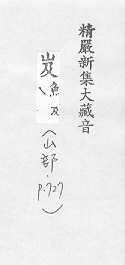 精嚴新集大藏音
岌魚及
(山部.
p.727)